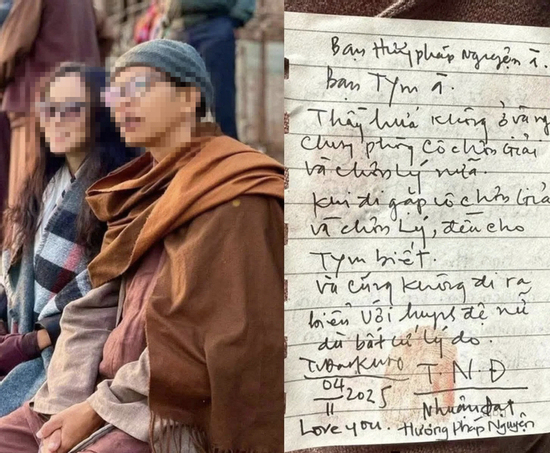 Bạn Hương pháp Nguyện à.
Bạn Tym à.
Thầy hứa không ở vâng
chung phòng cô chơn Giải
và chơn lý nữa.
khi đi gặp cô chơn Giải
và chơn Lý, đều cho
Tym biết.
và cũng không đi ra
biển với đệ nữ
dù bất cứ lý do.
04
11 2025
T.N.Đ
Nhuận Đạt
Love you. Hương Pháp Nguyện